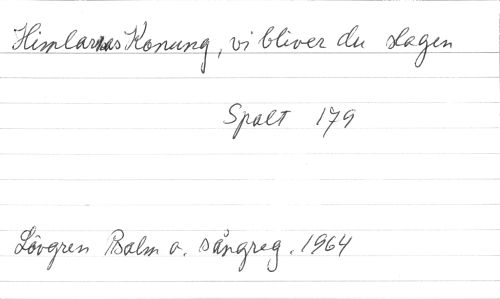 Himlarnas Konung, vi bliver du slagen
Spalt 179
Lövgren Psalm o. sångreg. 1964